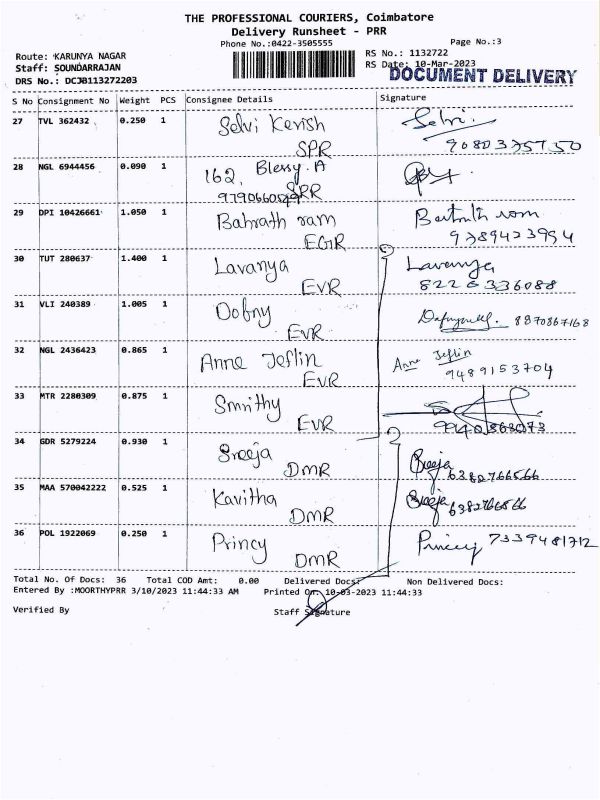 THE PROFESSIONAL COURIERS, Coimbatore
Delivery Runsheet - PRR
Phone No.:0422-3505555
Page No.:3
Route: KARUNYA NAGAR
RS No.: 1132722
Staff: SOUNDARRAJAN
RS Date: 10-Mar-2023
DRS No.: DCJB113272203
DOCUMENT DELIVERY
S No Consignment No Weight PCS Consignee Details Signature
27 TVL 362432 0.250 1 Selvi Kerish SPR Selvi.
28 NGL 6944456 0.090 1 162, Blessy. A SRR
29 DPI 10426661 1.050 1 Bahrath ram EGR
9789423994
30 TUT 280637 1.400 1 Lavanya EVR Lavanya
8220336088
31 VLI 240389 1.005 1 Dofny EVR 8870867168
32 NGL 2436423 0.865 1 Anne Jeflin EVR Anne Jeflin
9489153704
33 MTR 2280309 0.875 1 Smrithy EVR
34 GDR 5279224 0.930 1 Sreeja DMR Sreeja
6382766566
35 MAA 570042222 0.525 1 Kavitha DMR Sreeja
6382766566
36 POL 1922069 0.250 1 Princy DMR Princy 7339481712
Total No. Of Docs: 36 Total COD Amt: 0.00 Delivered Docs: Non Delivered Docs:
Entered By :MOORTHYPRR 3/10/2023 11:44:33 AM Printed On: 10-03-2023 11:44:33
Verified By Staff Signature